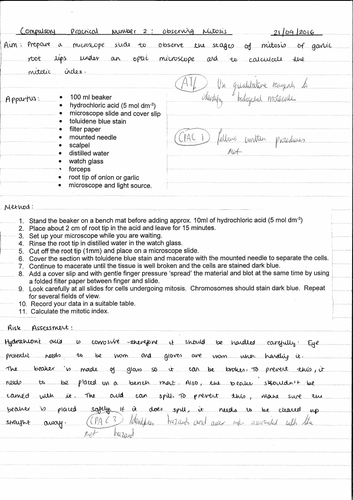 Compulsory Practical Number 2 : observing Mitosis 21/09/2016
Aim: Prepare a microscope slide to observe the stages of mitosis of garlic
root tips under an optic microscope and to calculate the
mitotic index.
AT1 Use qualitative reagents to
identify biological molecules
Appartus:
• 100 ml beaker
• hydrochloric acid (5 mol dm-3)
• microscope slide and cover slip
• toluidene blue stain
• filter paper
• mounted needle
• scalpel
• distilled water
• watch glass
• forceps
• root tip of onion or garlic
• microscope and light source.
CPAC 1 follows written procedures
Met
Method:
1. Stand the beaker on a bench mat before adding approx. 10ml of hydrochloric acid (5 mol dm-3)
2. Place about 2 cm of root tip in the acid and leave for 15 minutes.
3. Set up your microscope while you are waiting.
4. Rinse the root tip in distilled water in the watch glass.
5. Cut off the root tip (1mm) and place on a microscope slide.
6. Cover the section with toluidene blue stain and macerate with the mounted needle to separate the cells.
7. Continue to macerate until the tissue is well broken and the cells are stained dark blue.
8. Add a cover slip and with gentle finger pressure 'spread' the material and blot at the same time by using
a folded filter paper between finger and slide.
9. Look carefully at all slides for cells undergoing mitosis. Chromosomes should stain dark blue. Repeat
for several fields of view.
10. Record your data in a suitable table.
11. Calculate the mitotic index.
Risk Assessment:
Hydrochloric acid is corrosive therefore it should be handled carefully. Eye
protection needs to be worn and gloves are worn when handling it.
The beaker is made of glass so it can be broken. To prevent this, it
needs to be placed on a bench mat. Also, the beaker shouldn't be
carried with it. The acid can spill. To prevent this, make sure the
beaker is placed safely. If it does spill, it needs to be cleared up
straight away.
CPAC 3 Identifies hazards and risks associated with the
Met hazard